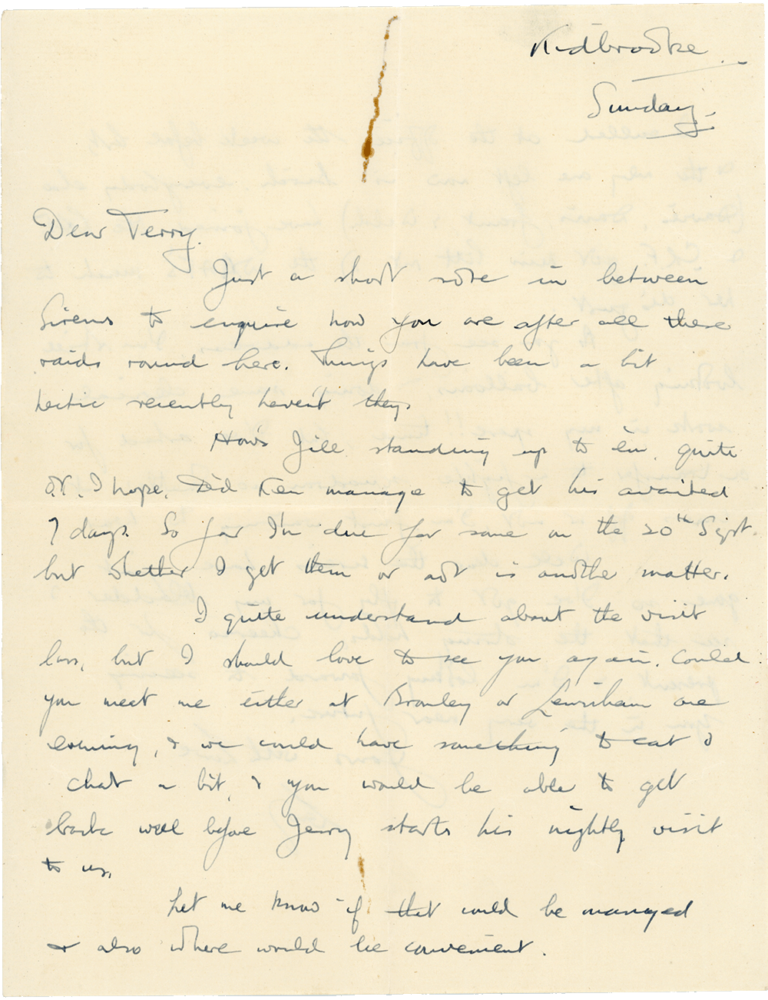 Kidbrooke.
Sunday.
Dear Terry.
Just a short note in between
Sirens to enquire how you are after all these
raids round here. Things have been a bit
hectic recently haven't they.
How's Jill standing up to 'em, quite
O.K. I hope. Did Ken manage to get his awaited
7 days. So far I'm due for some on the 20th Sept.
but whether I get them or not is another matter.
I quite understand about the visit
lass, but I should love to see you again. Could
you meet me either at Bromley or Lewisham one
evening, & we could have something to eat &
chat a bit, & you would be able to get
back well before Jerry starts his nightly visit
to us.
Let me know if that could be managed
& also where would be convenient.